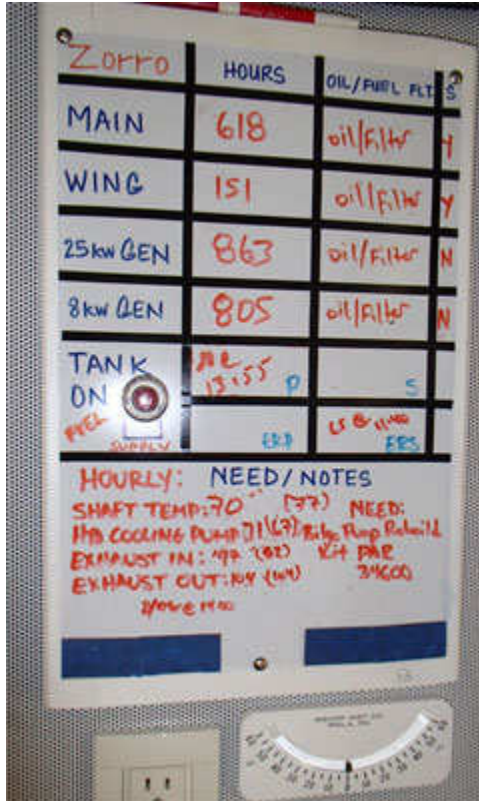 Zorro HOURS OIL/FUEL FLT S
MAIN 618 oil/Filter Y
WING 151 oil/Filter Y
25kw GEN 863 oil/Filter N
8kw GEN 805 oil/Filter N
TANK ON 13:55 P S
FUEL SUPPLY ERP ERS
HOURLY: NEED/NOTES
SHAFT TEMP: 70 (77) NEED:
HYD COOLING PUMP: 71 (67) Bilge Pump Rebuild
EXHAUST IN: Kit PAR
EXHAUST OUT: 104 34600